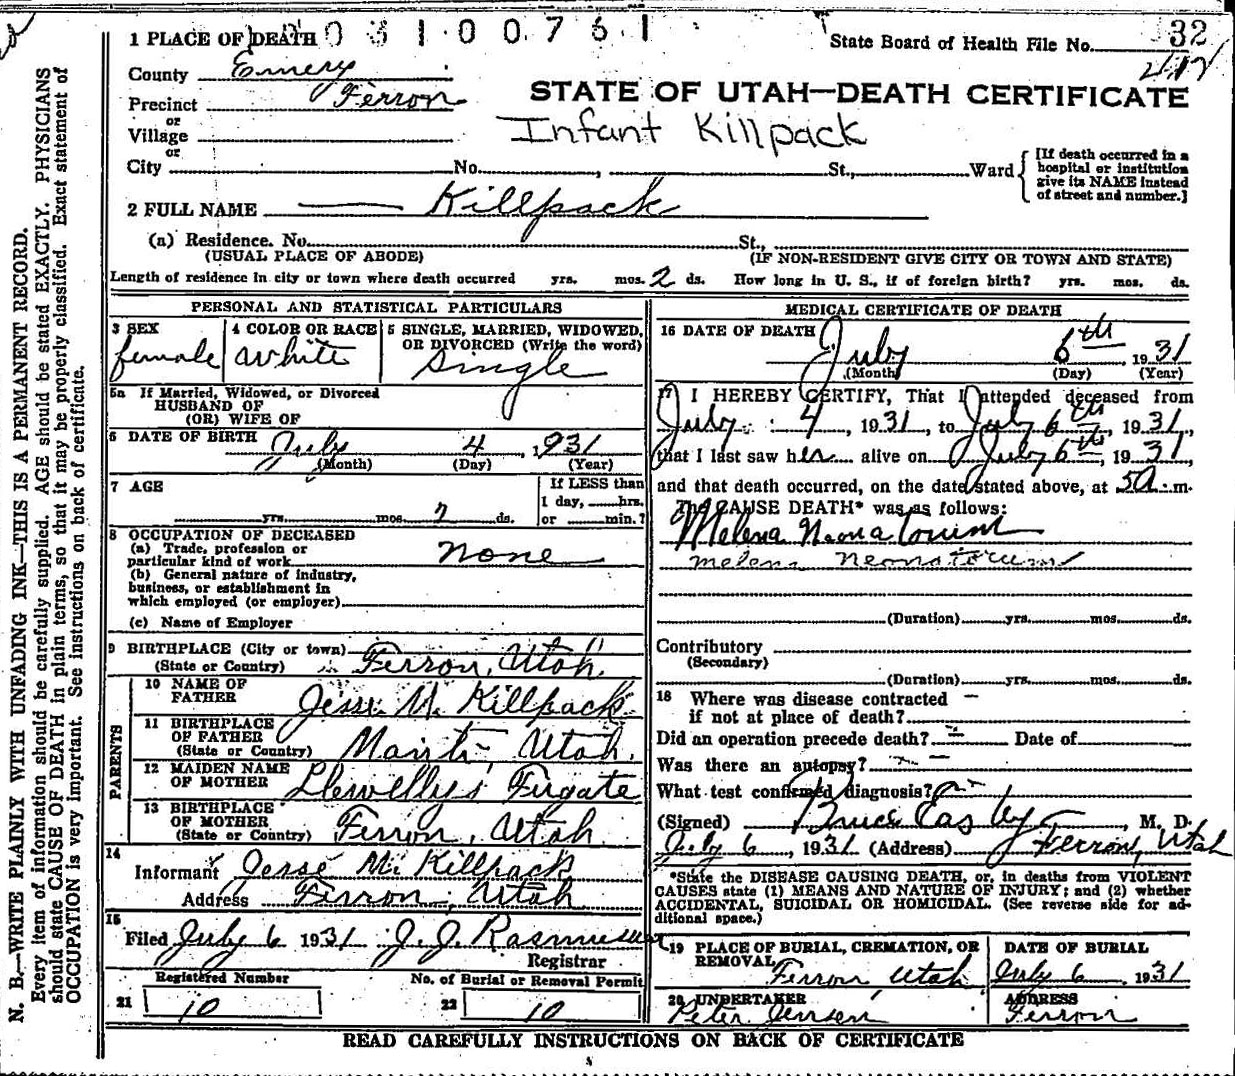 0 3 1 0 0 7 6 1
32
State Board of Health File No.
412
1 PLACE OF DEATH
County Emery
Precinct Ferron
or
Village
or
City No. , St., Ward
STATE OF UTAH—DEATH CERTIFICATE
Infant Killpack
[If death occurred in a
hospital or institution
give its NAME instead
of street and number.]
2 FULL NAME — Killpack
(a) Residence. No. St.,
(USUAL PLACE OF ABODE) (IF NON-RESIDENT GIVE CITY OR TOWN AND STATE)
Length of residence in city or town where death occurred yrs. mos. 2 ds. How long in U. S., if of foreign birth? yrs. mos. ds.
PERSONAL AND STATISTICAL PARTICULARS
3 SEX
female
4 COLOR OR RACE
white
5 SINGLE, MARRIED, WIDOWED,
OR DIVORCED (Write the word)
Single
5a If Married, Widowed, or Divorced
HUSBAND OF
(OR) WIFE OF
6 DATE OF BIRTH July 4, 1931
(Month) (Day) (Year)
7 AGE
yrs. mos. 2 ds.
If LESS than
1 day, hrs.
or min.?
8 OCCUPATION OF DECEASED
(a) Trade, profession or
particular kind of work none
(b) General nature of industry,
business, or establishment in
which employed (or employer)
(c) Name of Employer
9 BIRTHPLACE (City or town) Ferron, Utah
(State or Country)
PARENTS
10 NAME OF
FATHER Jesse M. Killpack
11 BIRTHPLACE
OF FATHER
(State or Country) Manti, Utah.
12 MAIDEN NAME
OF MOTHER Llewellys Fugate
13 BIRTHPLACE
OF MOTHER
(State or Country) Ferron, Utah
14
Informant Jesse M. Killpack
Address Ferron, Utah
15
Filed July 6 1931 J. J. Rasmussen
Registrar
Registered Number No. of Burial or Removal Permit
21 10 22 10
MEDICAL CERTIFICATE OF DEATH
16 DATE OF DEATH July 6th 1931
(Month) (Day) (Year)
17 I HEREBY CERTIFY, That I attended deceased from
July 4, 1931, to July 6th, 1931,
that I last saw her alive on July 6th, 1931,
and that death occurred, on the date stated above, at 5a.m.
The CAUSE DEATH* was as follows:
Melena Neonatorum
melena neonatorum
(Duration) yrs. mos. ds.
Contributory
(Secondary)
(Duration) yrs. mos. ds.
18 Where was disease contracted —
if not at place of death?
Did an operation precede death? Date of
Was there an autopsy?
What test confirmed diagnosis?
(Signed) Bruce Easley, M. D.
July 6, 1931 (Address) Ferron, Utah
*State the DISEASE CAUSING DEATH, or, in deaths from VIOLENT
CAUSES state (1) MEANS AND NATURE OF INJURY; and (2) whether
ACCIDENTAL, SUICIDAL OR HOMICIDAL. (See reverse side for ad-
ditional space.)
19 PLACE OF BURIAL, CREMATION, OR
REMOVAL
Ferron, Utah
DATE OF BURIAL
July 6, 1931
20 UNDERTAKER
Peter Jensen
ADDRESS
Ferron
READ CAREFULLY INSTRUCTIONS ON BACK OF CERTIFICATE
N. B.—WRITE PLAINLY WITH UNFADING INK—THIS IS A PERMANENT RECORD.
Every item of information should be carefully supplied. AGE should be stated EXACTLY. PHYSICIANS
should state CAUSE OF DEATH in plain terms, so that it may be properly classified. Exact statement of
OCCUPATION is very important. See instructions on back of certificate.